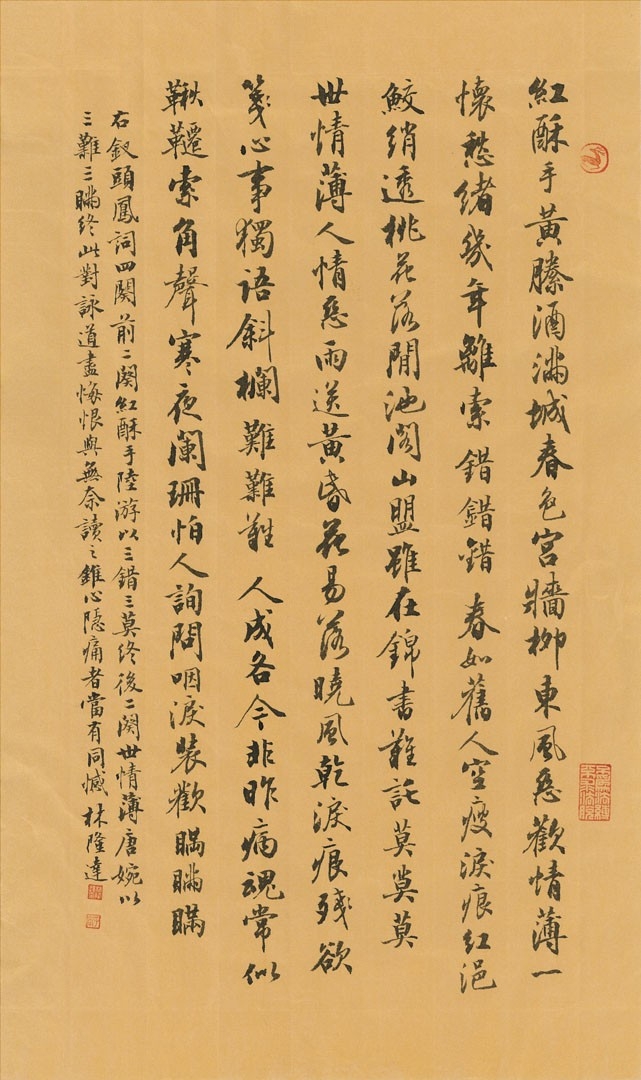 紅酥手黃縢酒滿城春色宮牆柳東風惡歡情薄一
懷愁緒幾年離索錯錯錯 春如舊人空瘦淚痕紅浥
鮫綃透桃花落閒池閣山盟雖在錦書難託莫莫莫
世情薄人情惡雨送黃昏花易落曉風乾淚痕殘欲
箋心事獨語斜欄難難難 人成各今非昨病魂常似
鞦韆索角聲寒夜闌珊怕人詢問咽淚裝歡瞞瞞瞞
右釵頭鳳詞四闋前二闋紅酥手陸游以三錯三莫終後二闋世情薄唐婉以
三難三瞞終此對詠道盡悔恨與無奈讀之錐心隱痛者當有同憾 林隆達